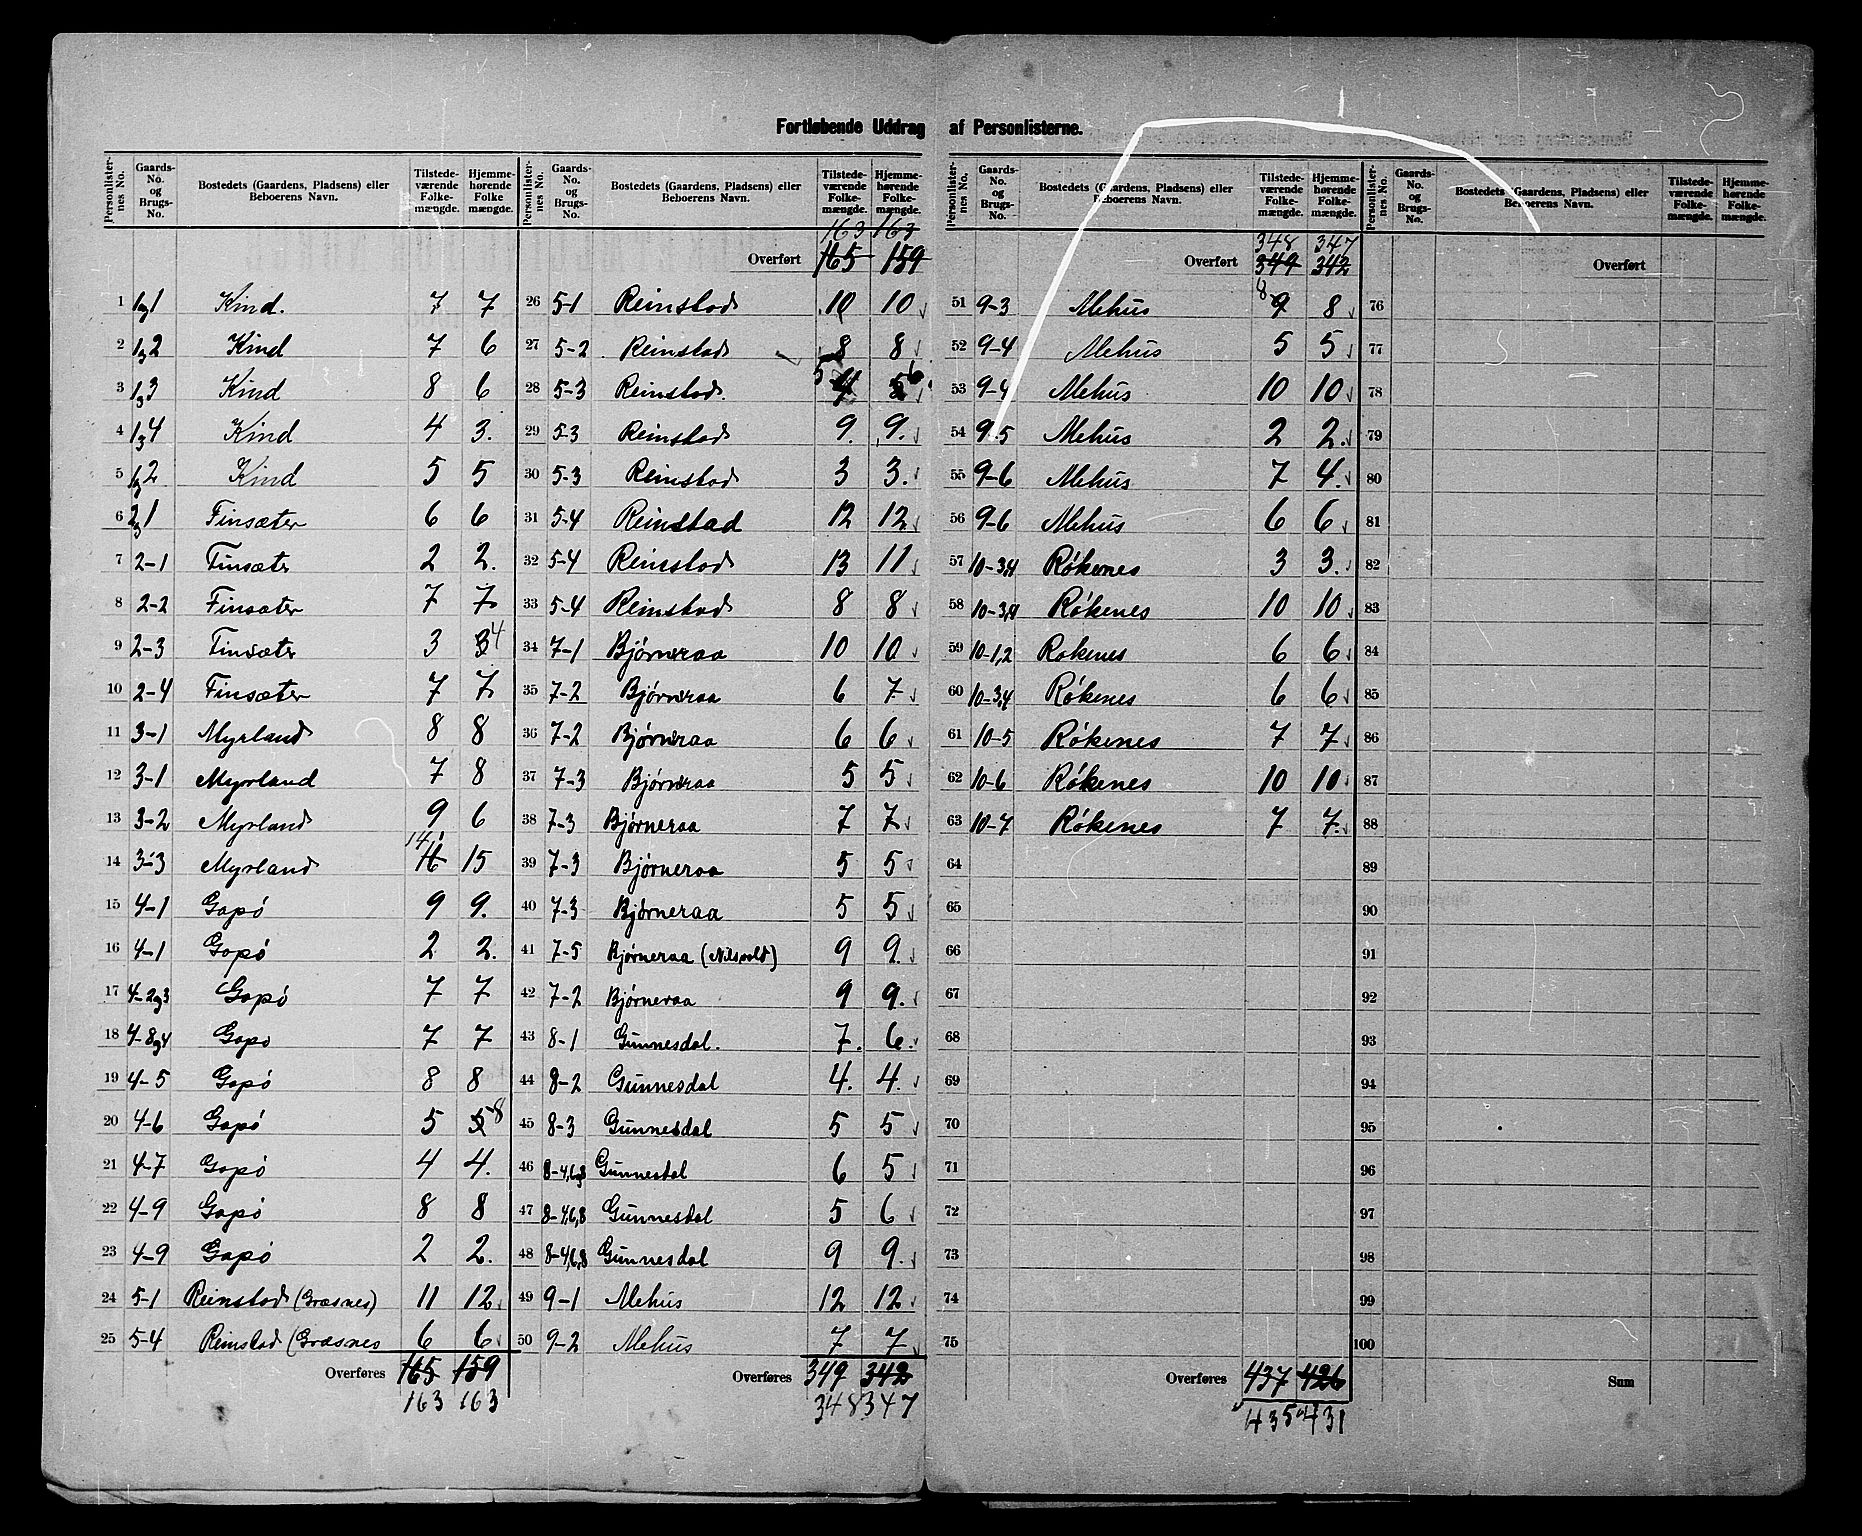 Fortløbende Uddrag af Personlisterne.
Personlister-nes No. Gaards-No. og Brugs-No. Bostedets (Gaardens, Pladsens) eller Beboerens Navn. Tilstede-værende Folke-mængde. Hjemme-hørende Folke mængde.
Personlister-nes No. Gaards-No. og Brugs-No. Bostedets (Gaardens, Pladsens) eller Beboerens Navn. Tilstede-værende Folke-mængde. Hjemme-hørende Folke-mængde.
163 163
Overført 165 159
1 1,1 Kind. 7 7
2 1,2 Kind 7 6
3 1,3 Kind 8 6
4 1,4 Kind 4 3.
5 1,2 Kind 5 5
6 2,1 Finsæter 6 6
7 2-1 Finsæter 2 2.
8 2-2 Finsæter 7 7
9 2-3 Finsæter 3 3 4
10 2-4 Finsæter 7 7
11 3-1 Myrland 8 8
12 3-1 Myrland 7 8
13 3-2 Myrland 9 6
14 3-3 Myrland 14 16 15
15 4-1 Gapø 9 9.
16 4-1 Gapø 2 2.
17 4-2og3 Gapø 7 7
18 4-8og4 Gapø 7 7
19 4-5 Gapø 8 8
20 4-6 Gapø 5 5 8
21 4-7 Gapø 4 4.
22 4-9 Gapø 8 8
23 4-9 Gapø 2 2.
24 5-1 Reinstad (Græsnes) 11 12
25 5-4 Reinstad (Græsnes 6 6
Overføres 165 159
163 163
26 5-1 Reinstad 10 10
27 5-2 Reinstad 8 8
28 5-3 Reinstad. 5 4 5 6
29 5-3 Reinstad 9. 9.
30 5-3 Reinstad 3 3.
31 5-4 Reinstad 12 12
32 5-4 Reinstad 13 11
33 5-4 Reinstad 8 8
34 7-1 Bjørneraa 10 10
35 7-2 Bjørneraa 6 7
36 7-2 Bjørneraa 6 6
37 7-3 Bjørneraa 5 5
38 7-3 Bjørneraa 7 7
39 7-3 Bjørneraa 5 5
40 7-3 Bjørneraa 5 5
41 7-5 Bjørneraa (Nilsvold) 9 9.
42 7-2 Bjørneraa 9 9.
43 8-1 Gunnesdal. 7. 6.
44 8-2 Gunnesdal 4. 4.
45 8-3 Gunnesdal 5 5
46 8-4,6,8 Gunnesdal 6 5
47 8-4,6,8 Gunnesdal 5 6
48 8-4,6,8 Gunnesdal 9 9.
49 9-1 Mehus 12 12
50 9-2 Mehus 7 7
Overføres 349 342
348 347
Personlister-nes No. Gaards-No. og Brugs-No. Bostedets (Gaardens, Pladsens) eller Beboerens Navn. Tilstede-værende Folke-mængde. Hjemme-hørende Folke-mængde.
348 347
Overført 349 342
51 9-3 Mehus 8 9 8
52 9-4 Mehus 5 5
53 9-4 Mehus 10 10
54 9-5 Mehus 2 2
55 9-6 Mehus 7 4.
56 9-6 Mehus 6 6
57 10-3,4 Røkenes 3 3.
58 10-3,4 Røkenes 10 10
59 10-1,2 Rokenes 6 6
60 10-3,4 Røkenes 6 6
61 10-5 Røkenes 7 7
62 10-6 Røkenes 10 10
63 10-7 Røkenes 7 7
64
65
66
67
68
69
70
71
72
73
74
75
Overføres 437 426
435 431
Personlister-nes No. Gaards-No. og Brugs-No. Bostedets (Gaardens, Pladsens) eller Beboerens Navn. Tilstede-værende Folke-mængde. Hjemme-hørende Folke-mængde.
Overført
76
77
78
79
80
81
82
83
84
85
86
87
88
89
90
91
92
93
94
95
96
97
98
99
100
Sum